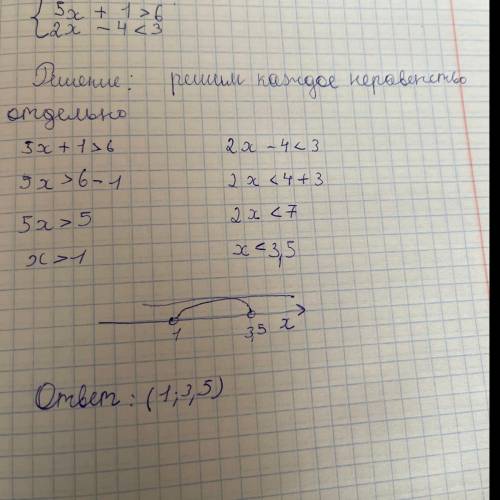 { 5x + 1 > 6
2x - 4 < 3
Решение: решим каждое неравенство
отдельно
5x + 1 > 6 2x - 4 < 3
5x > 6 - 1 2x < 4 + 3
5x > 5 2x < 7
x > 1 x < 3,5
1 3,5 x
Ответ: (1; 3,5)